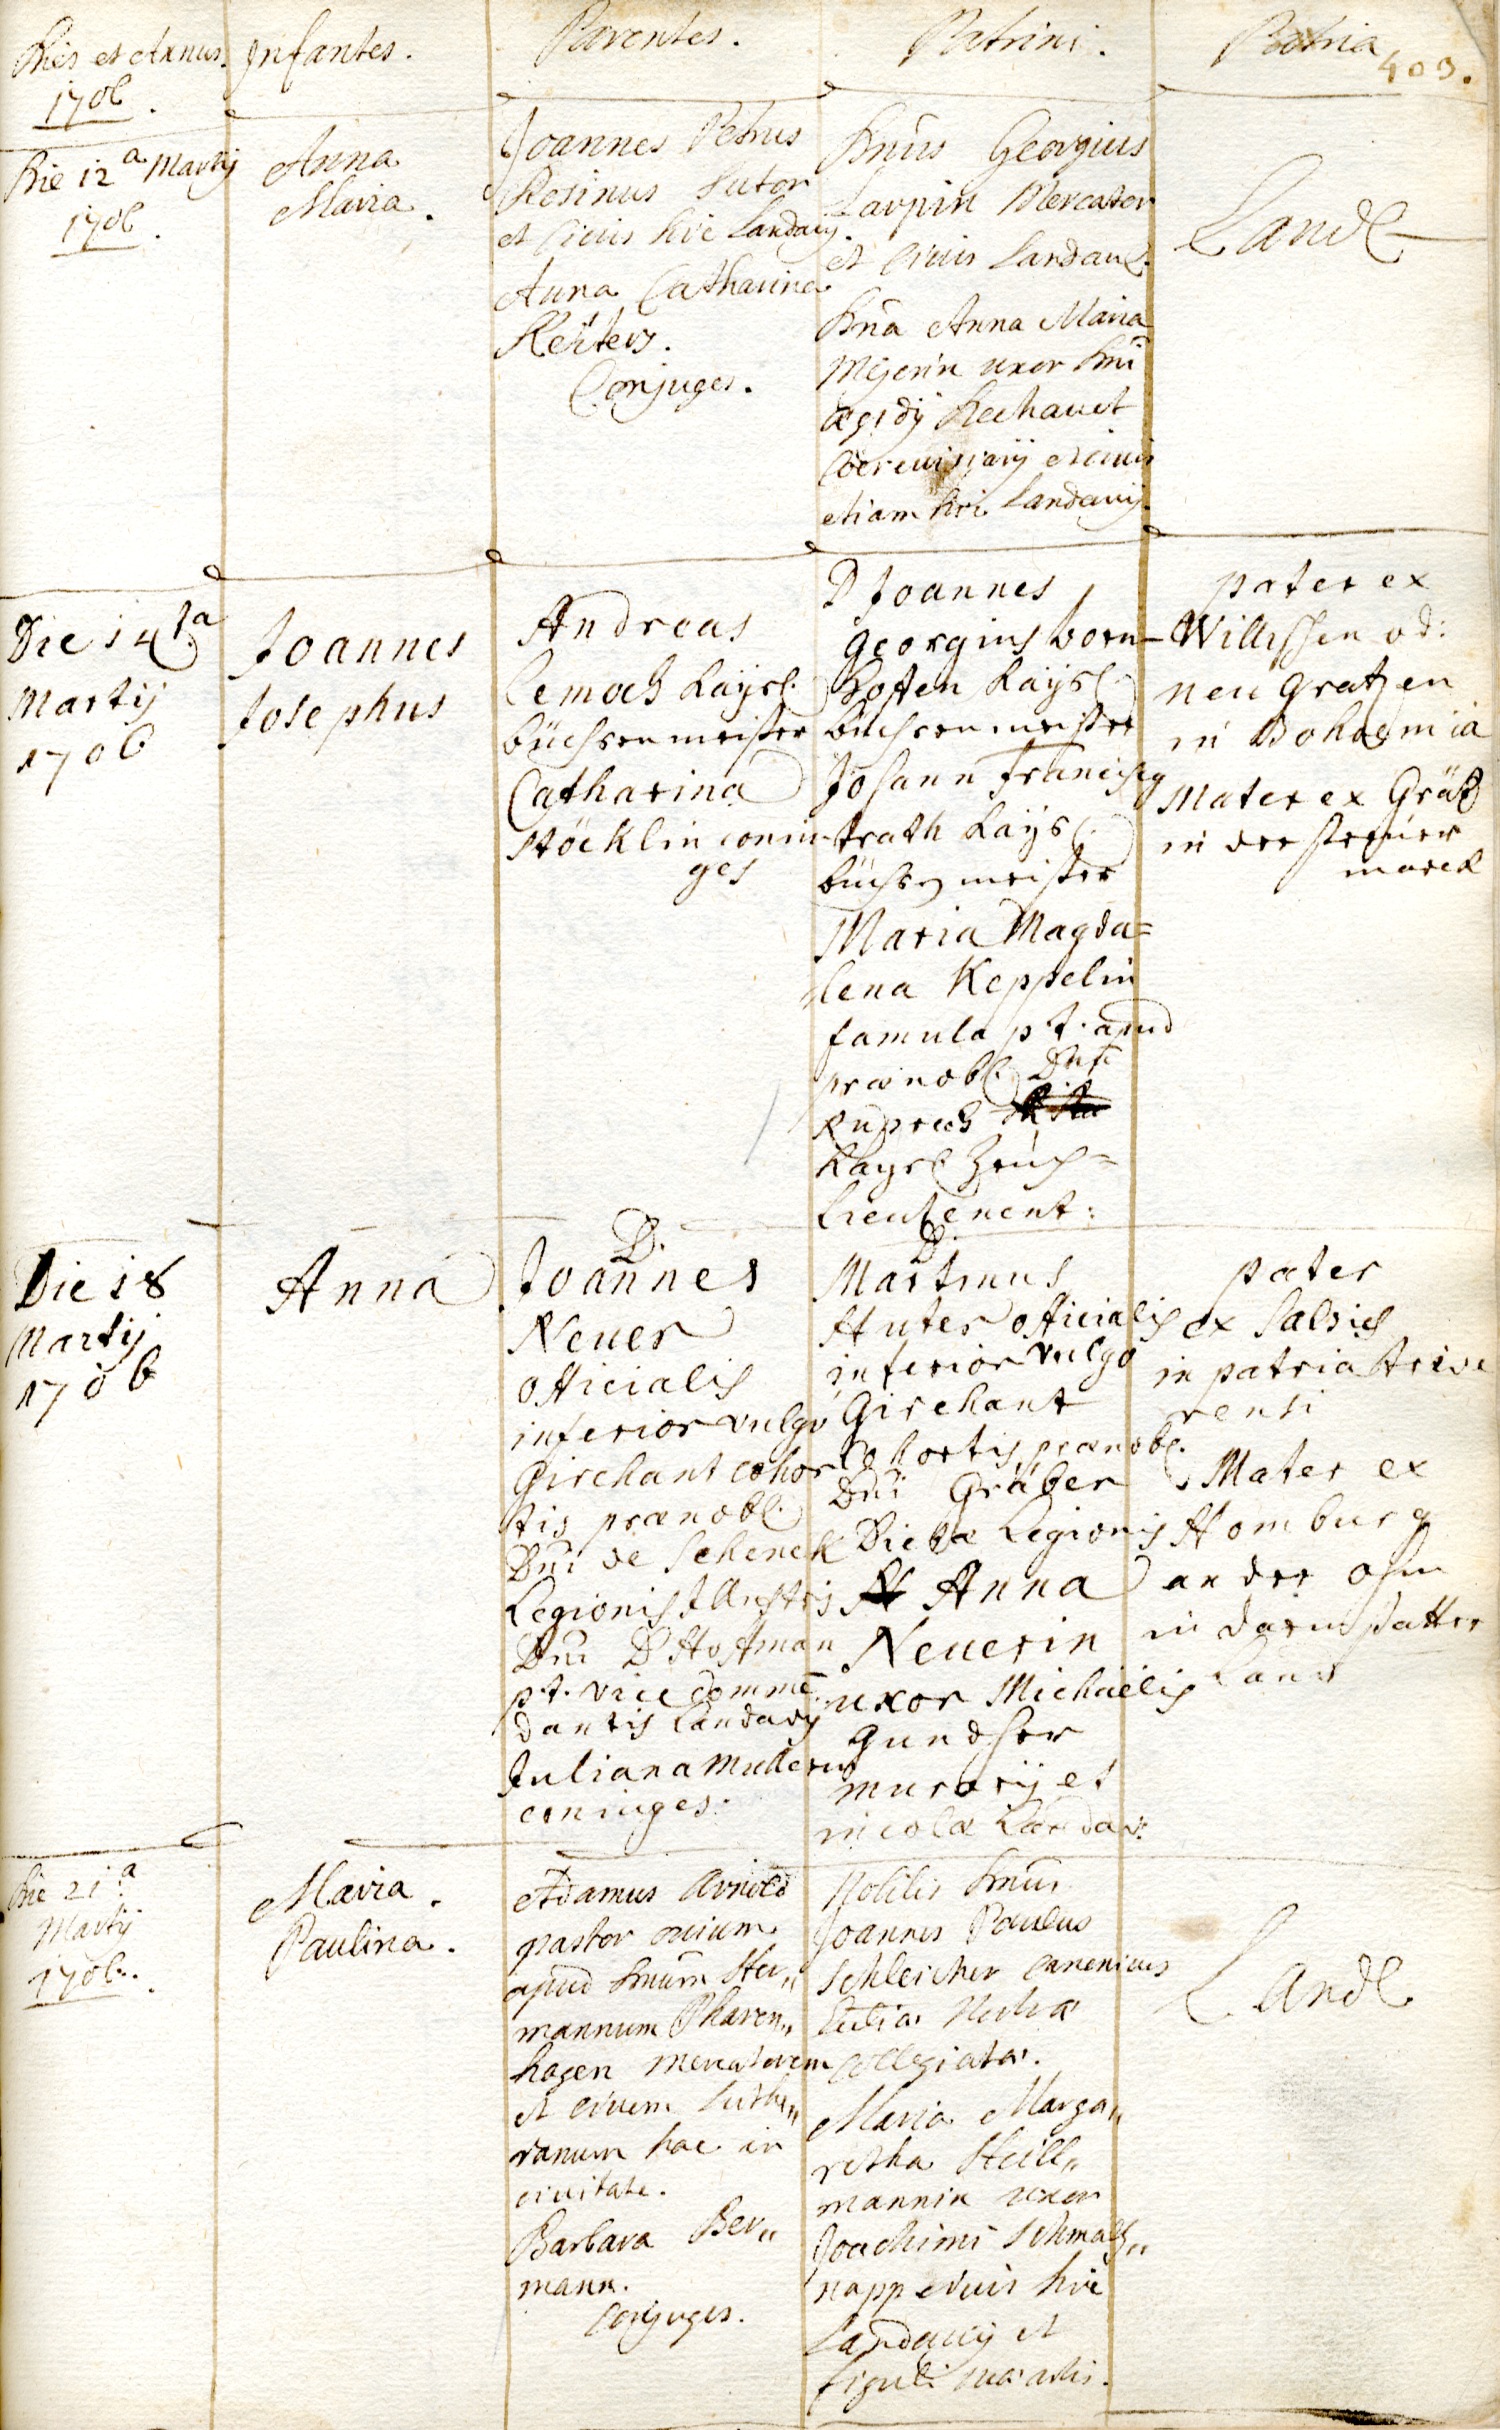 Dies et Annus. Infantes. Parentes. Patrini. Patria
403.
1706.
Die 12a Martij
1706.
Anna
Maria.
Joannes Petrus
Resinus Sutor
et Civis hic Landavij
Anna Catharina
Reüters.
Conjuges.
Dnus Georgius
Laurpin Mercator
et Civis Landav.
Dna Anna Maria
Meyerin uxor Dni
Ægidij Dechauet
Coerevisiarij et civis
etiam hic Landavij.
Land
Die 14ta
Martij
1706
Joannes
Josephus
Andreas
Lemoch Kaÿsl.
büchsenmeister
Catharina
Stöcklin coniu
ges
D Joannes
Georgius born-
Kosten Kaÿsl.
büchsenmeister
Johann Francisq
trath Kaÿsl.
büchsenmeister
Maria Magda=
lena Keppelin
famula p.t. apud
prænobl. Dnū
Ruprech
Kaysl Zeüch=
Lieutenent:
pater ex
Willissen od:
neu gratzen
in Bohoemia
Mater ex Grätz
in der steüer
marck
Die 18
Martij
1706
Anna
D.
Joannes
Neuer
officialis
inferior vulgo
Girchant cohor
tis prænobl.
Dni de Schenck
Legionis Illustris
Dni D Hoffman
p.t. vice comme
dantis Landavij
Juliana Mullerin
coniuges.
D.
Martinus
Huter officialis
inferior vulgo
Girchant
Cohortis prænobl.
Dni Gräber
Dictæ Legionis
Anna
Neuerin
uxor Michaëlis
Gundher
murarij et
incolæ Landav:
pater
ex Salzich
in patria treve
rensi
Mater ex
Homburg
an der ohm
in darmstatter
Land
Die 21.a
Martij
1706.
Maria
Paulina.
Adamus Arnold
pastor ovium
apud Dnum Her„
mannum Pharen„
hagen mercatorem
et civem Luthe„
ranum hac in
civitate.
Barbara Ber„
mann.
Conjuges.
Nobilis Dnus
Joannes Paulus
Schleicher Canonicus
Eccliæ Nostræ
Collegiatæ.
Maria Marga„
retha Heill„
mannin uxor
Joachimi Schmaltz„
napp civis hic
Landavij et
figuli
Land